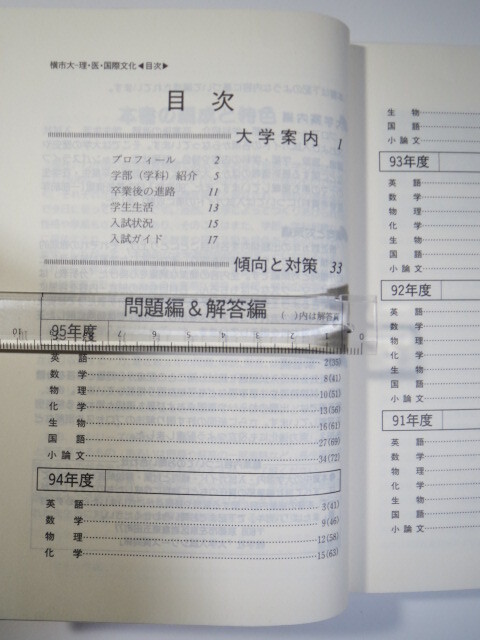 横市大-理・医・国際文化◀目次▶
目 次
大学案内 1
プロフィール 2
学部（学科）紹介 5
卒業後の進路 11
学生生活 13
入試状況 15
入試ガイド 17
傾向と対策 33
問題編&解答編 （ ）内は解答
95年度
英語 2(35)
数学 8(41)
物理 10(51)
化学 13(56)
生物 16(61)
国語 27(69)
小論文 34(72)
94年度
英語 3(41)
数学 9(46)
物理 12(58)
化学 15(63)
生物
国語
小論文
93年度
英語
数学
物理
化学
生物
国語
小論文
92年度
英語
数学
物理
化学
生物
国語
小論文
91年度
英語
数学
物理
化学
生物
国語
小論文